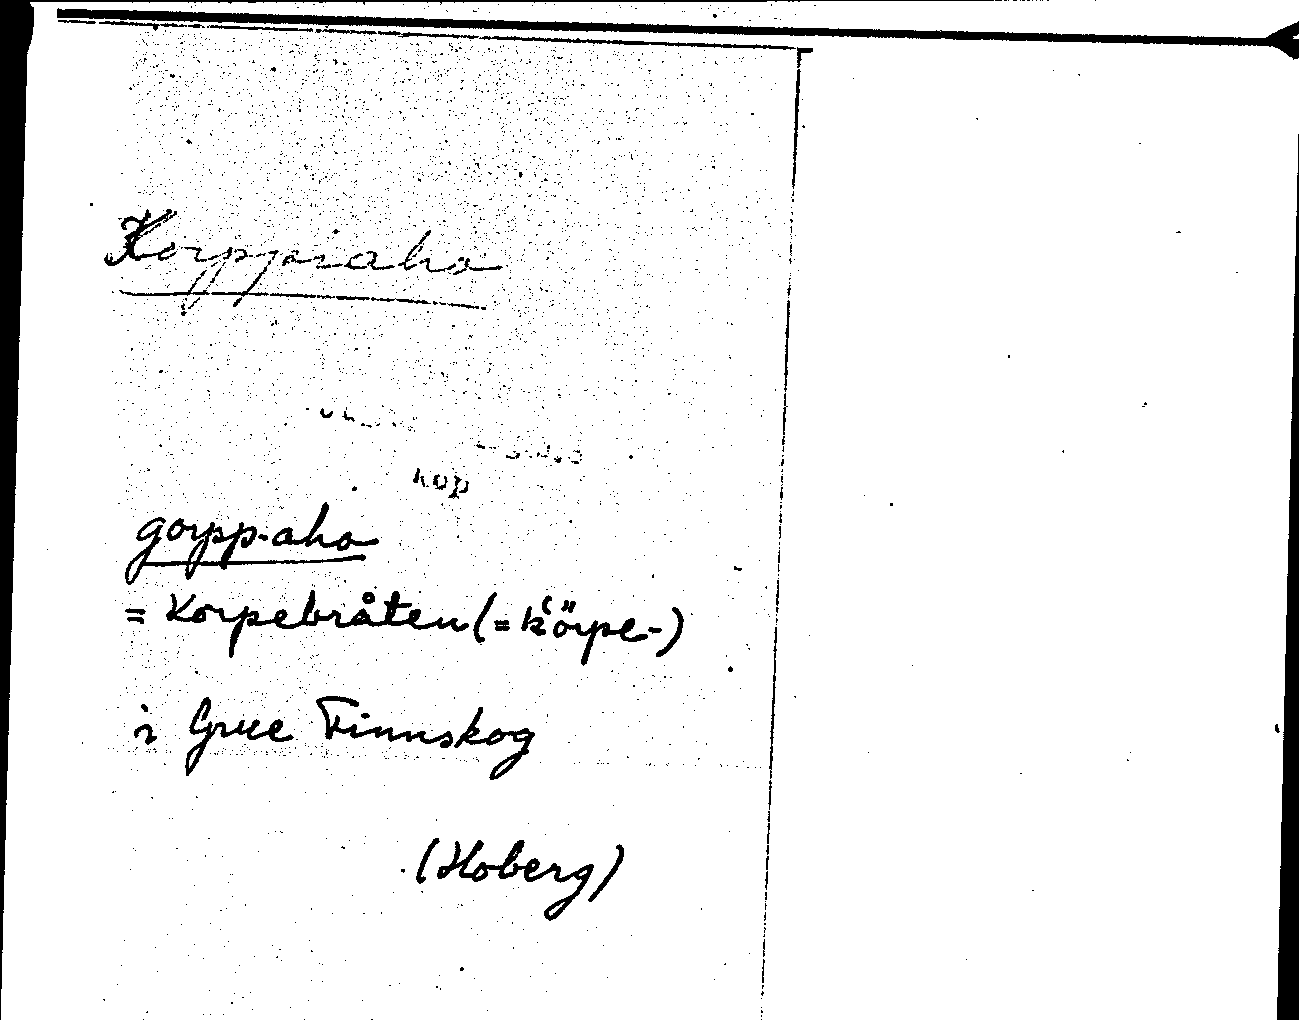 Korppiaho
kop
gorpp-aho
= Korpebråten (= k'örpe-)
i Grue Finnskog
(Hoberg)